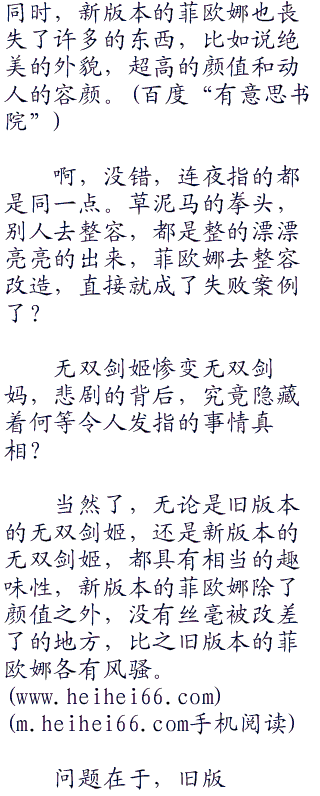 同时，新版本的菲欧娜也丧
失了许多的东西，比如说绝
美的外貌，超高的颜值和动
人的容颜。(百度“有意思书
院”)
啊，没错，连夜指的都
是同一点。草泥马的拳头，
别人去整容，都是整的漂漂
亮亮的出来，菲欧娜去整容
改造，直接就成了失败案例
了？
无双剑姬惨变无双剑
妈，悲剧的背后，究竟隐藏
着何等令人发指的事情真
相？
当然了，无论是旧版本
的无双剑姬，还是新版本的
无双剑姬，都具有相当的趣
味性，新版本的菲欧娜除了
颜值之外，没有丝毫被改差
了的地方，比之旧版本的菲
欧娜各有风骚。
(www.heihei66.com)
(m.heihei66.com手机阅读)
问题在于，旧版